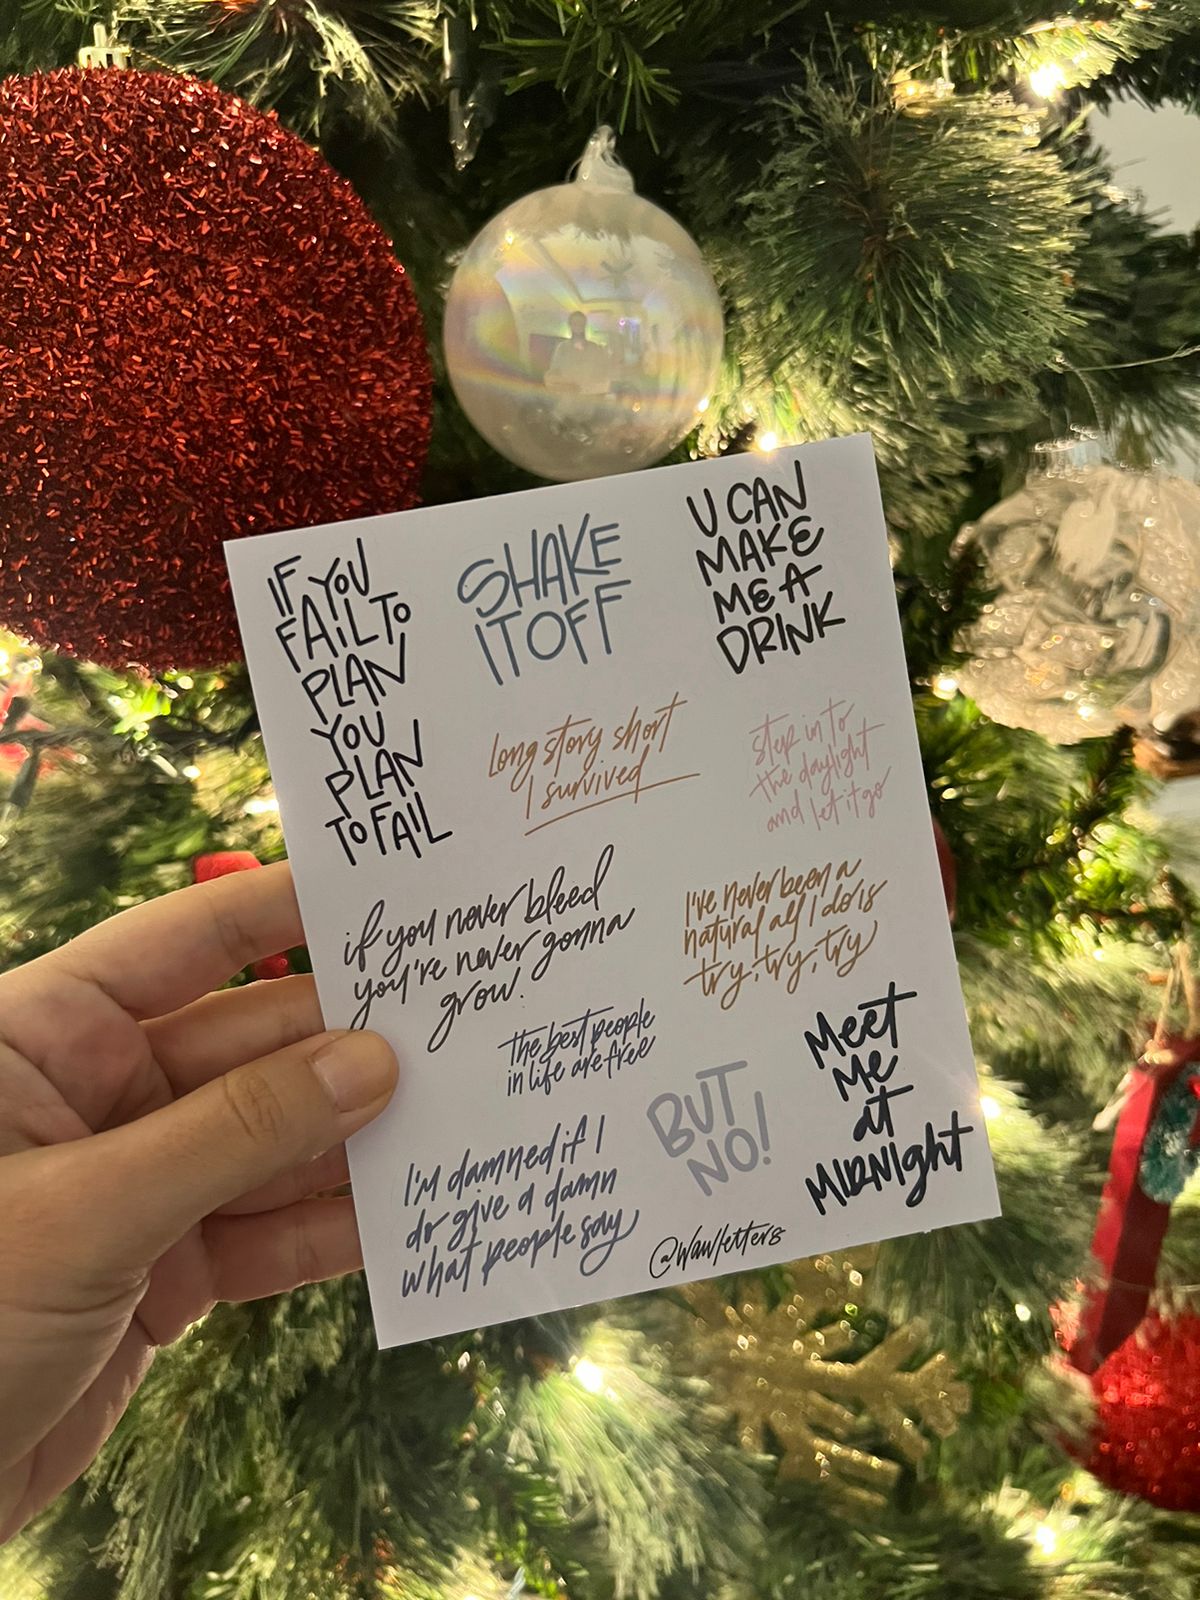 IF YOU
FAIL TO
PLAN
YOU
PLAN
TO FAIL
SHAKE
IT OFF
U CAN
MAKE
ME A
DRINK
Long story short
I survived
step in to
the daylight
and let it go
if you never bleed
you're never gonna
grow.
I've never been a
natural all I do is
try, try, try
the best people
in life are free
BUT
NO!
Meet
Me
at
MIDNIght
I'm damned if I
do give a damn
what people say
@wawletters